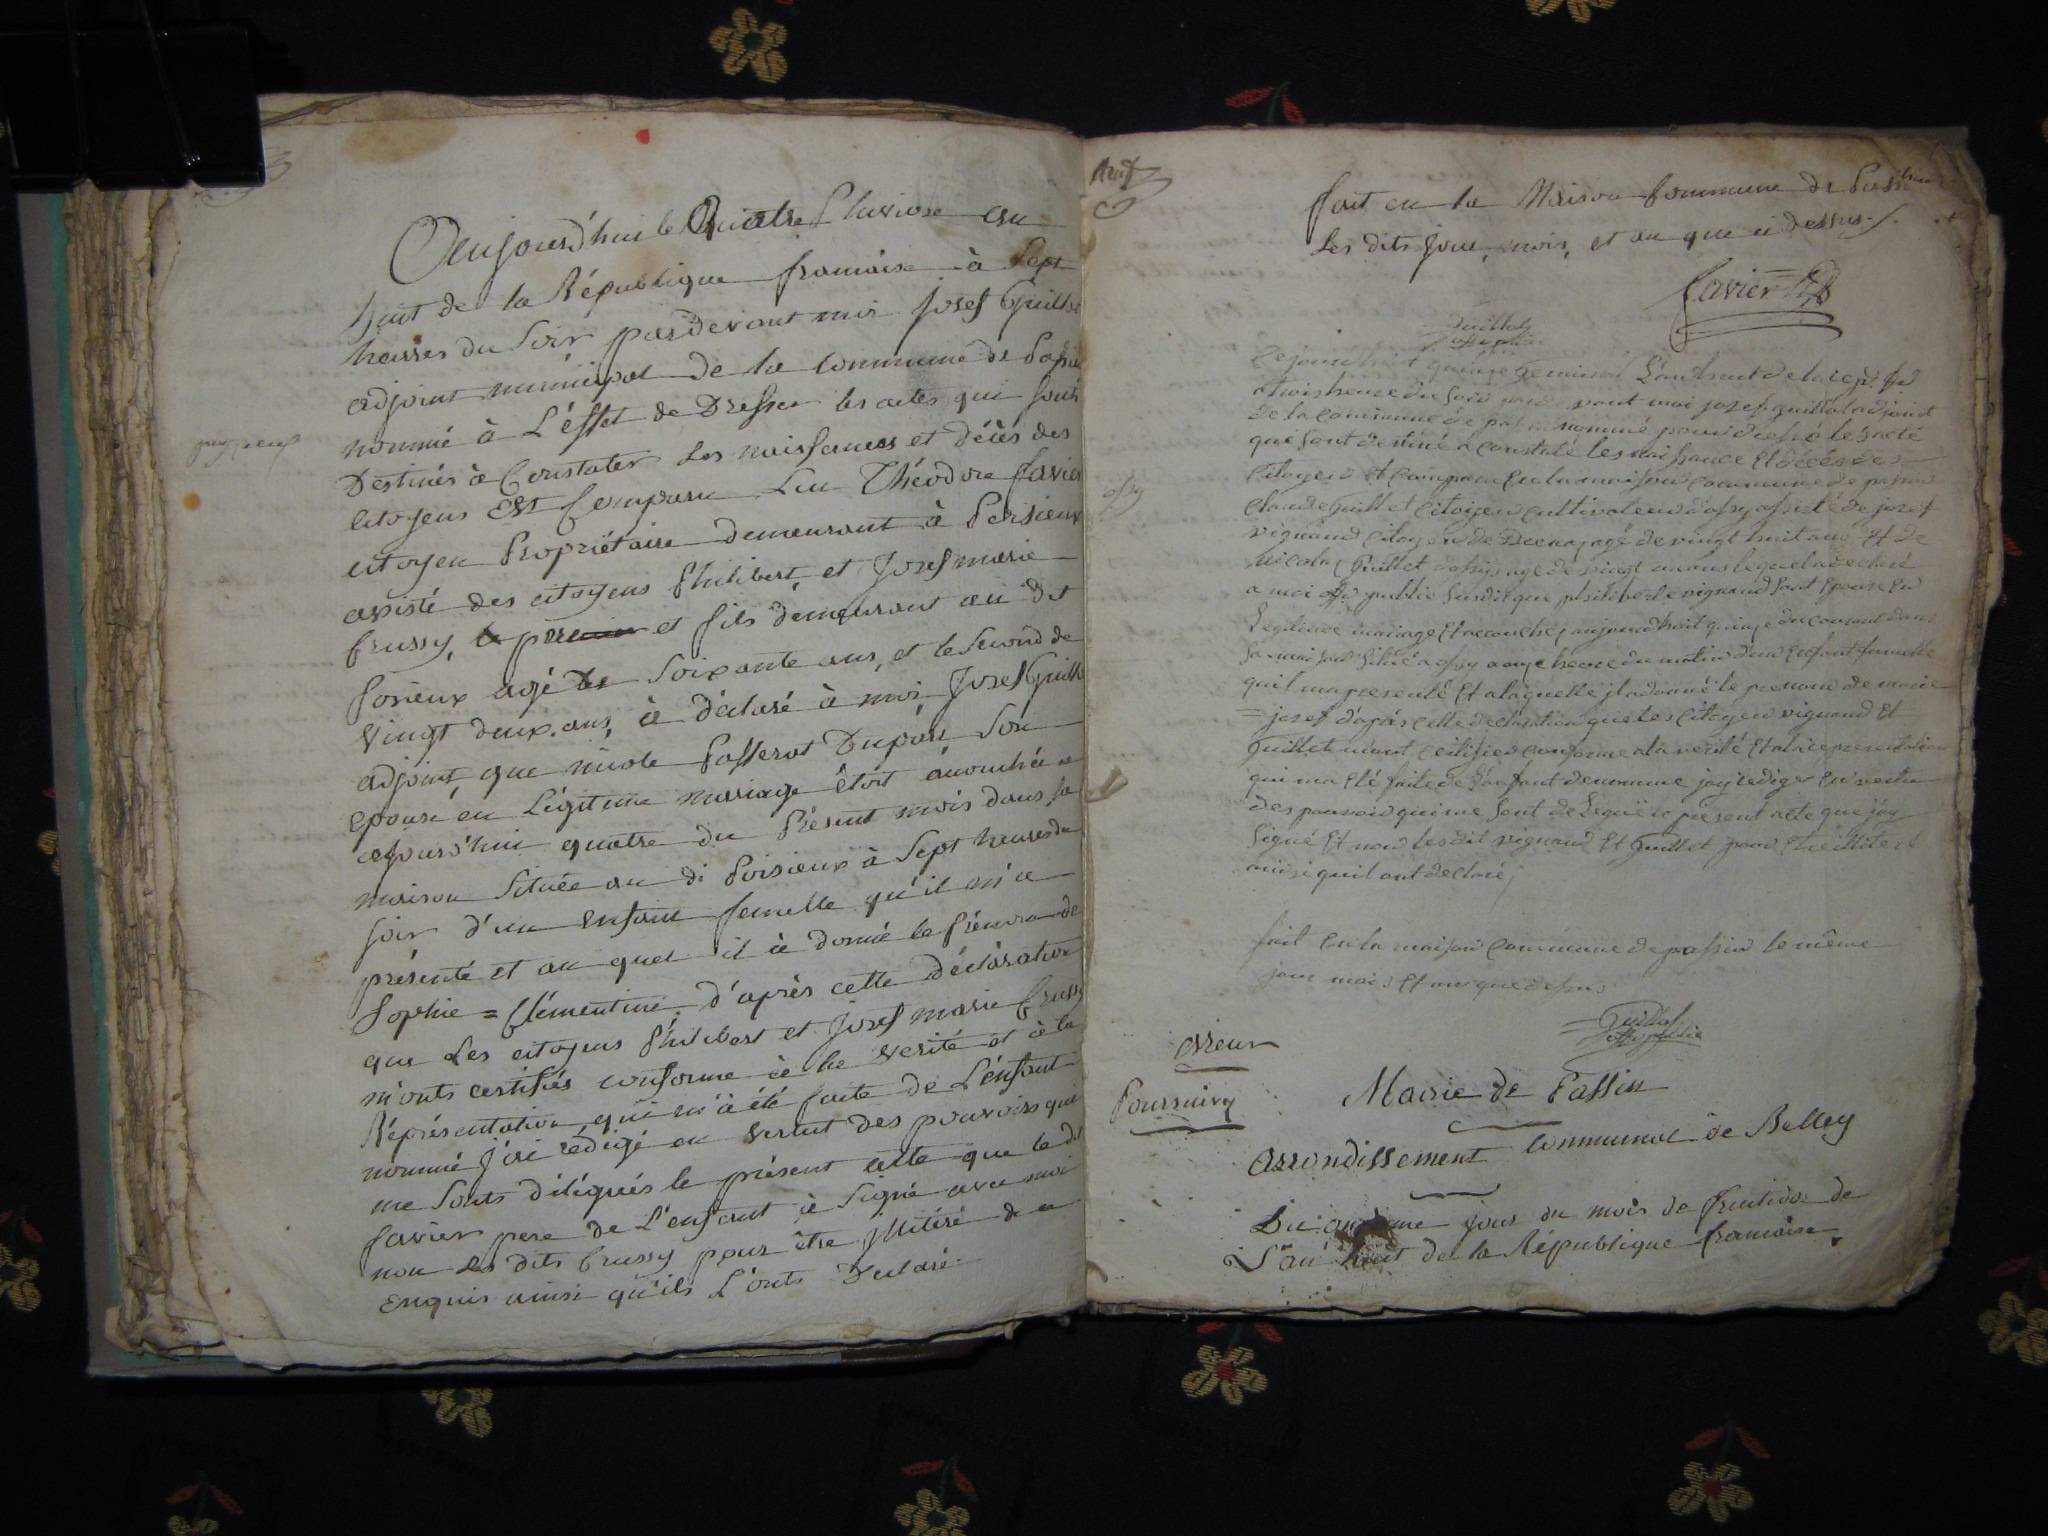 Aujourd'hui le Quatre Pluviose an
huit de la République francaise à Sept
heures du Soir pardevant moi Josef Guillot
adjoint municipal de la Commune de Passin
nommé à L'effet de Dresser les actes qui sont
Destinés à Constater Les naissances et décès des
citoyens Est Comparu Luc Théodore favier
citoyen Propriétaire demeurant à Poisieux
assisté des citoyens Philibert et Josef marie
Crussy, et fils demeurant au dit
Posieux agé de Soixante ans, et le Second de
Vingt deux ans, à déclaré à moi Josef Guillot
adjoint, que nicole Passerat Dupars Son
epouse en Légitime mariage êtoit accouchée
cejourd'hui quatre du Présent mois dans sa
maison Située au di Poisieux à Sept heures du
soir d'un enfant femelle qu'il m'a
présenté et au quel il à donné le Prénom de
Sophie = Clémentine. d'après cette déclaration
que Les citoyens Philibert et Josef marie Crussy
m'onts certifiés conforme à la verité et à la
Réprésentation qui m'à été faite de L'enfant
nommé j'ai rédigé en vertut des pouvoirs qui
me sonts délégués le présent acte que le dit
favier pere de L'enfant à Signé avec moi
non les dits Crussy pour être illitéré de ce
enquis ainsi qu'ils L'onts Déclaré
puysieux
fait en la Maison Commune de Passin
Les dits jour, mois, et an que ci dessus.
favier
Guillot
Cejourdhuit quinze Germinal L'an huit de la rep. fr
a trois heure du Soir par devant moi josef guillot adjoint
de la commune de passin nommé pour dressé le s acte
qui sont destiné a constaté les naissance Et décès des
Citoyen Et Comparu En la maison commune de passin
Claude Guillet Citoyen cultivateur d'ossy assisté de josef
vignand Citoyen de agé de vingt huit ans Et de
nicolas Guillet d'ossy agé de vingt un ans lequel a déclaré
a moi offi public Susdit que vignand Sont Epouse En
Legitime mariage Et accouchez aujourdhuit quinze du courant dans
Sa maison Situé a ossy a onze heure du matin d'un Enfant femelle
quil ma presenté Et a laquelle jl a donné le prenom de marie
= josef d'après cette declaration que les Citoyen vignand Et
Guillet mont Certifier conforme a la verité Et a la representation
qui ma Eté faite de L'enfant denommé jay rediger En vertu
des pouvoir qui me Sont delegué le present acte que j'ay
Signé Et non lesdit vignand Et Guillet pour Etre illiteré
ainsi quil ont declaré
ossy
fait En la maison commune de passin le même
jour mois Et an que desus
Guillot
off public
erreur
Poursuivez
Mairie de Passin
Arrondissement Communal de Belley
Du jour du mois de fructidor de
L'an huit de la République francaise.